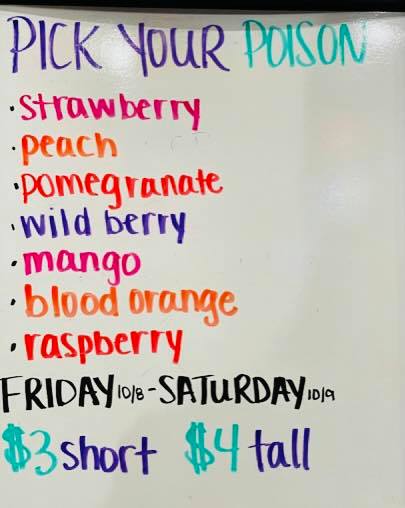 PICK YOUR POISON
·strawberry
·peach
·pomegranate
·wild berry
·mango
·blood orange
·raspberry
FRIDAY 10/8 - SATURDAY 10/9
$3 short $4 tall